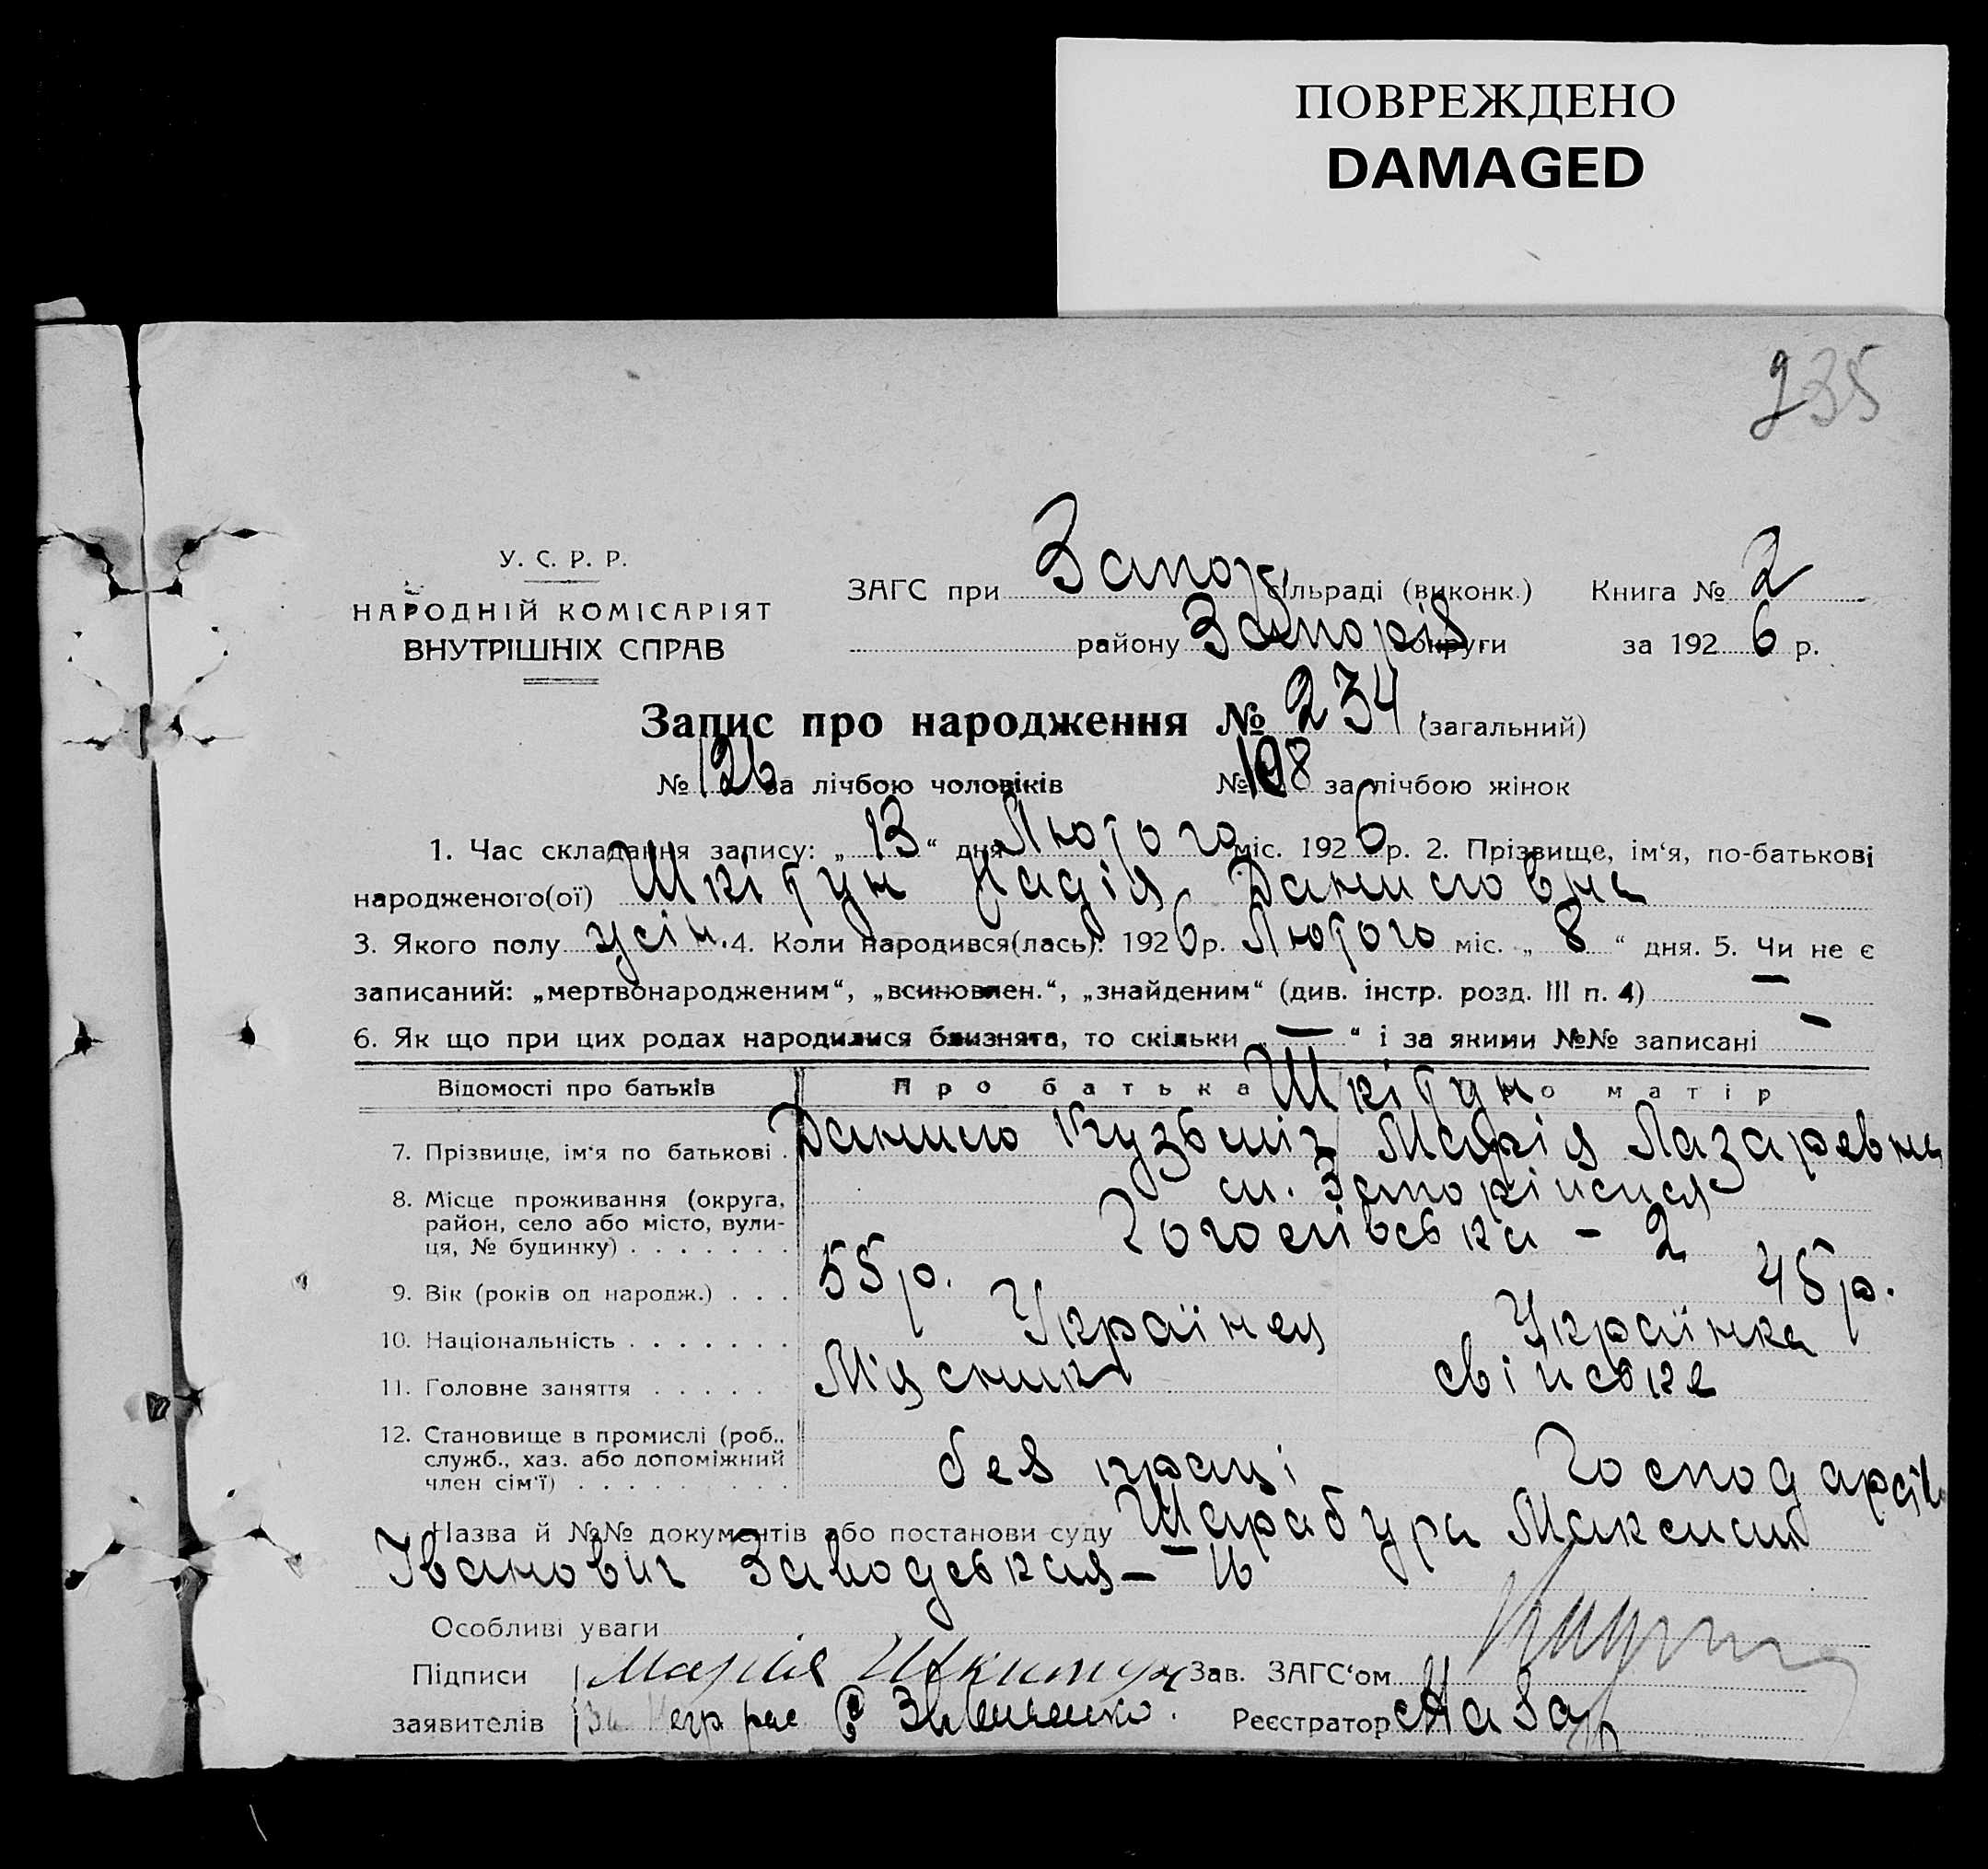 ПОВРЕЖДЕНО
DAMAGED
235
У. С. Р. Р.
НАРОДНІЙ КОМІСАРІЯТ
ВНУТРІШНІХ СПРАВ
ЗАГС при Запор. сільраді (виконк.) Книга № 2
району Запоріз округи за 1926 р.
Запис про народження № 234 (загальний)
№ 126 за лічбою чоловіків № 108 за лічбою жінок
1. Час складання запису: „13“ дня Лютого міс. 1926 р. 2. Прізвище, ім‘я, по-батькові
народженого(ої) Шкітун Надія Даниловна
3. Якого полу 4. Коли народився(лась): 1926 р. Лютого міс. „8“ дня. 5. Чи не є
записаний: „мертвонародженим“, „всиновлен.“, „знайденим“ (див. інстр. розд. III п. 4) —
6. Як що при цих родах народилися близнята, то скільки „—“ і за якими №№ записані —
Відомості про батьків Про батька Про матір
Шкітун
7. Прізвище, ім‘я по батькові . Данило Кузьміч Марія Лазаревна
8. Місце проживання (округа, район, село або місто, вулиця, № будинку) . . . . . . . м. Запоріжжя
Гоголівська - 2
9. Вік (років од народж.) . . . 55 р. 45 р.
10. Національність . . . . . . . Українец Українка
11. Головне заняття . . . . . Мясник свійське
12. Становище в промислі (роб., служб., хаз. або допоміжний член сім‘ї) . . . . . . . . . без праці Господарств
Назва й №№ документів або постанови суду Шарабура Максим
Іванович Заводськая - 16
Особливі уваги
Підписи Марія Шкитун Зав. ЗАГС‘ом
заявителів За негр рас Реєстратор Назар